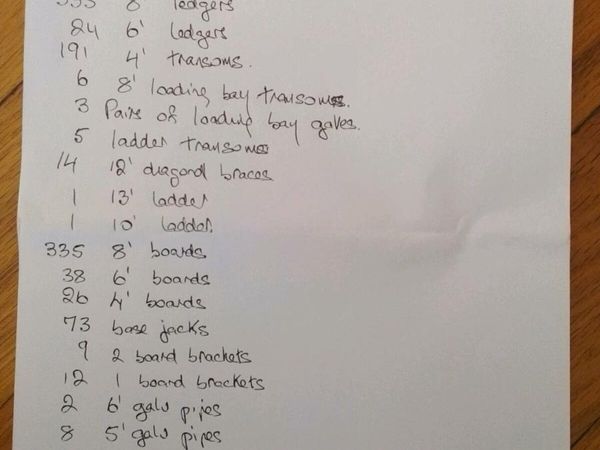 8' ledgers
24 6' ledgers
191 4' transoms.
6 8' loading bay transoms.
3 Pairs of loading bay gates.
5 ladder transoms
14 12' diagonal braces
1 13' ladder
1 10' ladder.
335 8' boards
38 6' boards
26 4' boards
73 base jacks
9 2 board brackets
12 1 board brackets
2 6' galv pipes
8 5' galv pipes